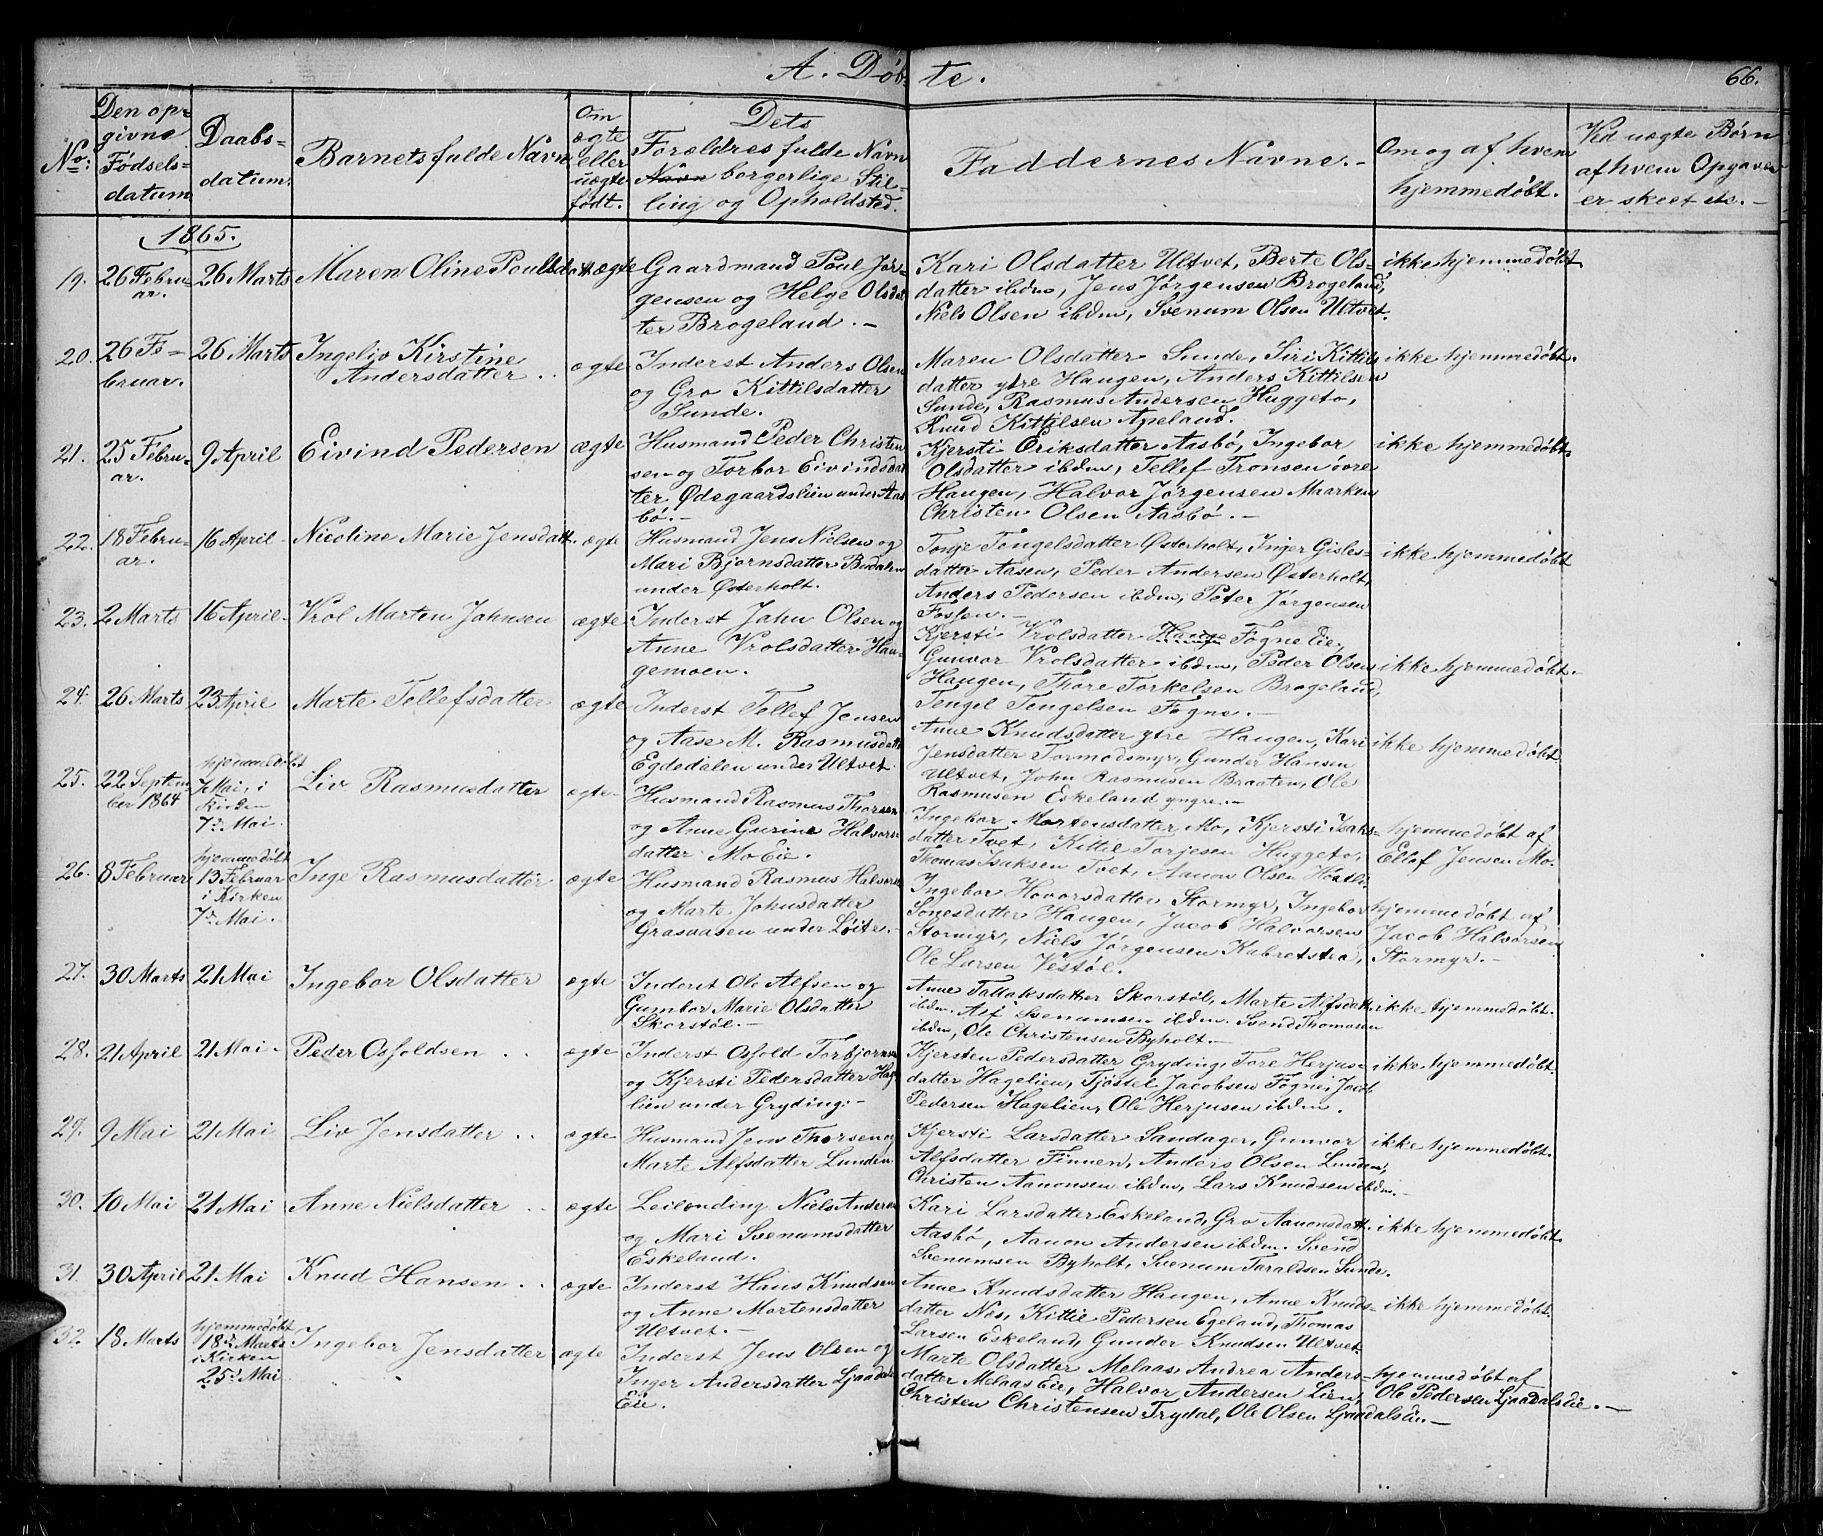 A. Døbte. 66.
No:
Den opgivne Fødselsdatum
Daabsdatum.
Barnets fulde Navn
Om ægte eller uægte født.
Dets Forældres fulde Navn Navn borgerlige Stilling og Opholdsted.
Faddernes Navne.-
Om og af hvem hjemmedøbt.
Ved uægte Børn af hvem Opgaven er skeet etc.-
1865.
19. 26 Februar. 26 Marts Maren Oline Poulsdatt. ægte
Gaardmand Poul Jør-
gensen og Helge Olsdat
ter Brogeland.-
Kari Olsdatter Ultvet, Berte Ols-
datter ibdm, Jens Jørgensen Brogeland,
Niels Olsen ibdm, Svenum Olsen Ultvet.
ikke hjemmedøbt
20. 26 Februar. 26 Marts Ingeliv Kirstine
Andersdatter.. ægte
Inderst Anders Olsen
og Gro Kittilsdatter
Sunde.
Maren Olsdatter Sunde, Siri Kittils
datter ytre Haugen, Anders Kittilsen
Sunde, Rasmus Andersen Huggeto,
Knud Kittilsen Apeland.
ikke hjemmedøbt.
21. 25 Februar. 9 April Eivind Pedersen ægte
Husmand Peder Christen
sen og Torbor Eivindsdat
ter Ødegaardslien under Aas
bø.-
Kjersti Eriksdatter Aasbø, Ingebor
Olsdatter ibdm, Tellef Tronsen øvre
Haugen, Halvor Jørgensen Maarken
Christen Olsen Aasbø.-
ikke hjemmedøbt
22. 18 Februar. 16 April Nicoline Marie Jensdatt. ægte
Husmand Jens Nielsen og
Mari Bjørnsdatter Budalen
under Østerholt.
Tonje Tengelsdatter Østerholt, Inger Gisles-
datter Aasen, Peder Andersen Østerholt,
Anders Pedersen ibdm, Peter Jørgensen
Fossen.-
ikke hjemmedøbt
23. 2 Marts 16 April Vrol Marten Johnsen ægte
Inderst John Olsen og
Anne Vrolsdatter Hau-
gemoen.
Kjersti Vrolsdatter Hauge Fogne Eie,
Gunvor Vrolsdatter ibdm, Peder Olsen
Haugen, Thore Torkelsen Brogeland,
Tengel Tengelsen Fogne.-
ikke hjemmedøbt.
24. 26 Marts 23 April Marte Tellefsdatter ægte
Inderst Tellef Jensen
og Aase M. Rasmusdatt
Egdedalen under Ultvet.
Anne Knudsdatter ytre Haugen, Kari
Jensdatter Tormodsmyr, Gunder Hansen
Ultvet, John Rasmusen Braaten, Ole
Rasmusen Eskeland yngre.-
ikke hjemmedøbt
25. 22 September 1864 hjemmedøbt
7 Mai, i
Kirken
7de Mai. Liv Rasmusdatter ægte
Husmand Rasmus Thorsen
og Anne Gurine Halvors
datter Mo Eie.
Ingebor Mortensdatter Mo, Kjersti Isaks-
datter Tvet, Kittil Torjesen Huggeto,
Thomas Isaksen Tvet, Aanon Olsen
hjemmedøbt af
Ellef Jensen Mo.
26. 8 Februar hjemmedøbt
13 Februar
i Kirken
7de Mai. Inge Rasmusdatter ægte
Husmand Rasmus Halvors
og Marte Johnsdatter
Grasaasen under Løite.-
Ingebor Hovorsdatter Stormyr, Ingebor
Sonesdatter Haugen, Jacob Halvorsen
Stormyr, Niels Jørgensen
Ole Larsen Vestøl.
hjemmedøbt af
Jacob Halvorsen
Stormyr.-
27. 30 Marts 21 Mai Ingebor Olsdatter ægte
Inderst Ole Alfsen og
Gumbor Marie Olsdatter
Skorstøl.-
Anne Tallaksdatter Skorstøl, Marte Alfsdatt.
ibdm. Alf Svenumsen ibdm. Svend Thomasen
ibdm, Ole Christensen Byholt.-
ikke hjemmedøbt.
28. 21 April 21 Mai Peder Osfoldsen.. ægte
Inderst Osfold Torbjørnsen
og Kjersti Pedersdatter Hage
lien under Gryding.-
Kjersten Pedersdatter Gryding, Tore Herjus-
datter Hagelien, Tjøstel Jacobsen Fogne, Jacob
Pedersen Hagelien, Ole Herjusen ibdm.
ikke hjemmedøbt.
29. 9 Mai 21 Mai Liv Jensdatter.. ægte
Husmand Jens Thorsen og
Marte Alfsdatter Lunden.
Kjersti Larsdatter Sandager, Gunvor
Alfsdatter Finnen, Anders Olsen Lunden,
Christen Aanonsen ibdm, Lars Knudsen ibdm.-
ikke hjemmedøbt.
30. 10 Mai 21 Mai Anne Nielsdatter.. ægte
Leilending Niels Andersen
og Mari Svenumsdatter
Eskeland.
Kari Larsdatter Eskeland, Gro Aanonsdatt.
Aasbø, Aanon Andersen ibdm. Svend
Svenumsen Byholt, Svenum Taraldsen Sunde.
ikke hjemmedøbt
31. 30 April 21 Mai Knud Hansen.. ægte
Inderst Hans Knudsen
og Anne Mortensdatter
Ultvet.-
Anne Knudsdatter Haugen, Anne Knuds-
datter Nes, Kittil Pedersen Egeland, Thomas
Larsen Eskeland, Gunder Knudsen Ultvet
ikke hjemmedøbt.
32. 18 Marts hjemmedøbt
18de Marts
i Kirken
25de Mai Ingebor Jensdatter ægte
Inderst Jens Olsen og
Inger Andersdatter Ljaadals
Eie.
Marte Olsdatter Melaas, Andrea Anders-
datter Melaas Eie, Halvor Andersen Lien,
Christen Christensen Trydal, Ole Olsen Ljaadalseie.-
hjemmedøbt af
Ole Pedersen Ljaadalseie.-